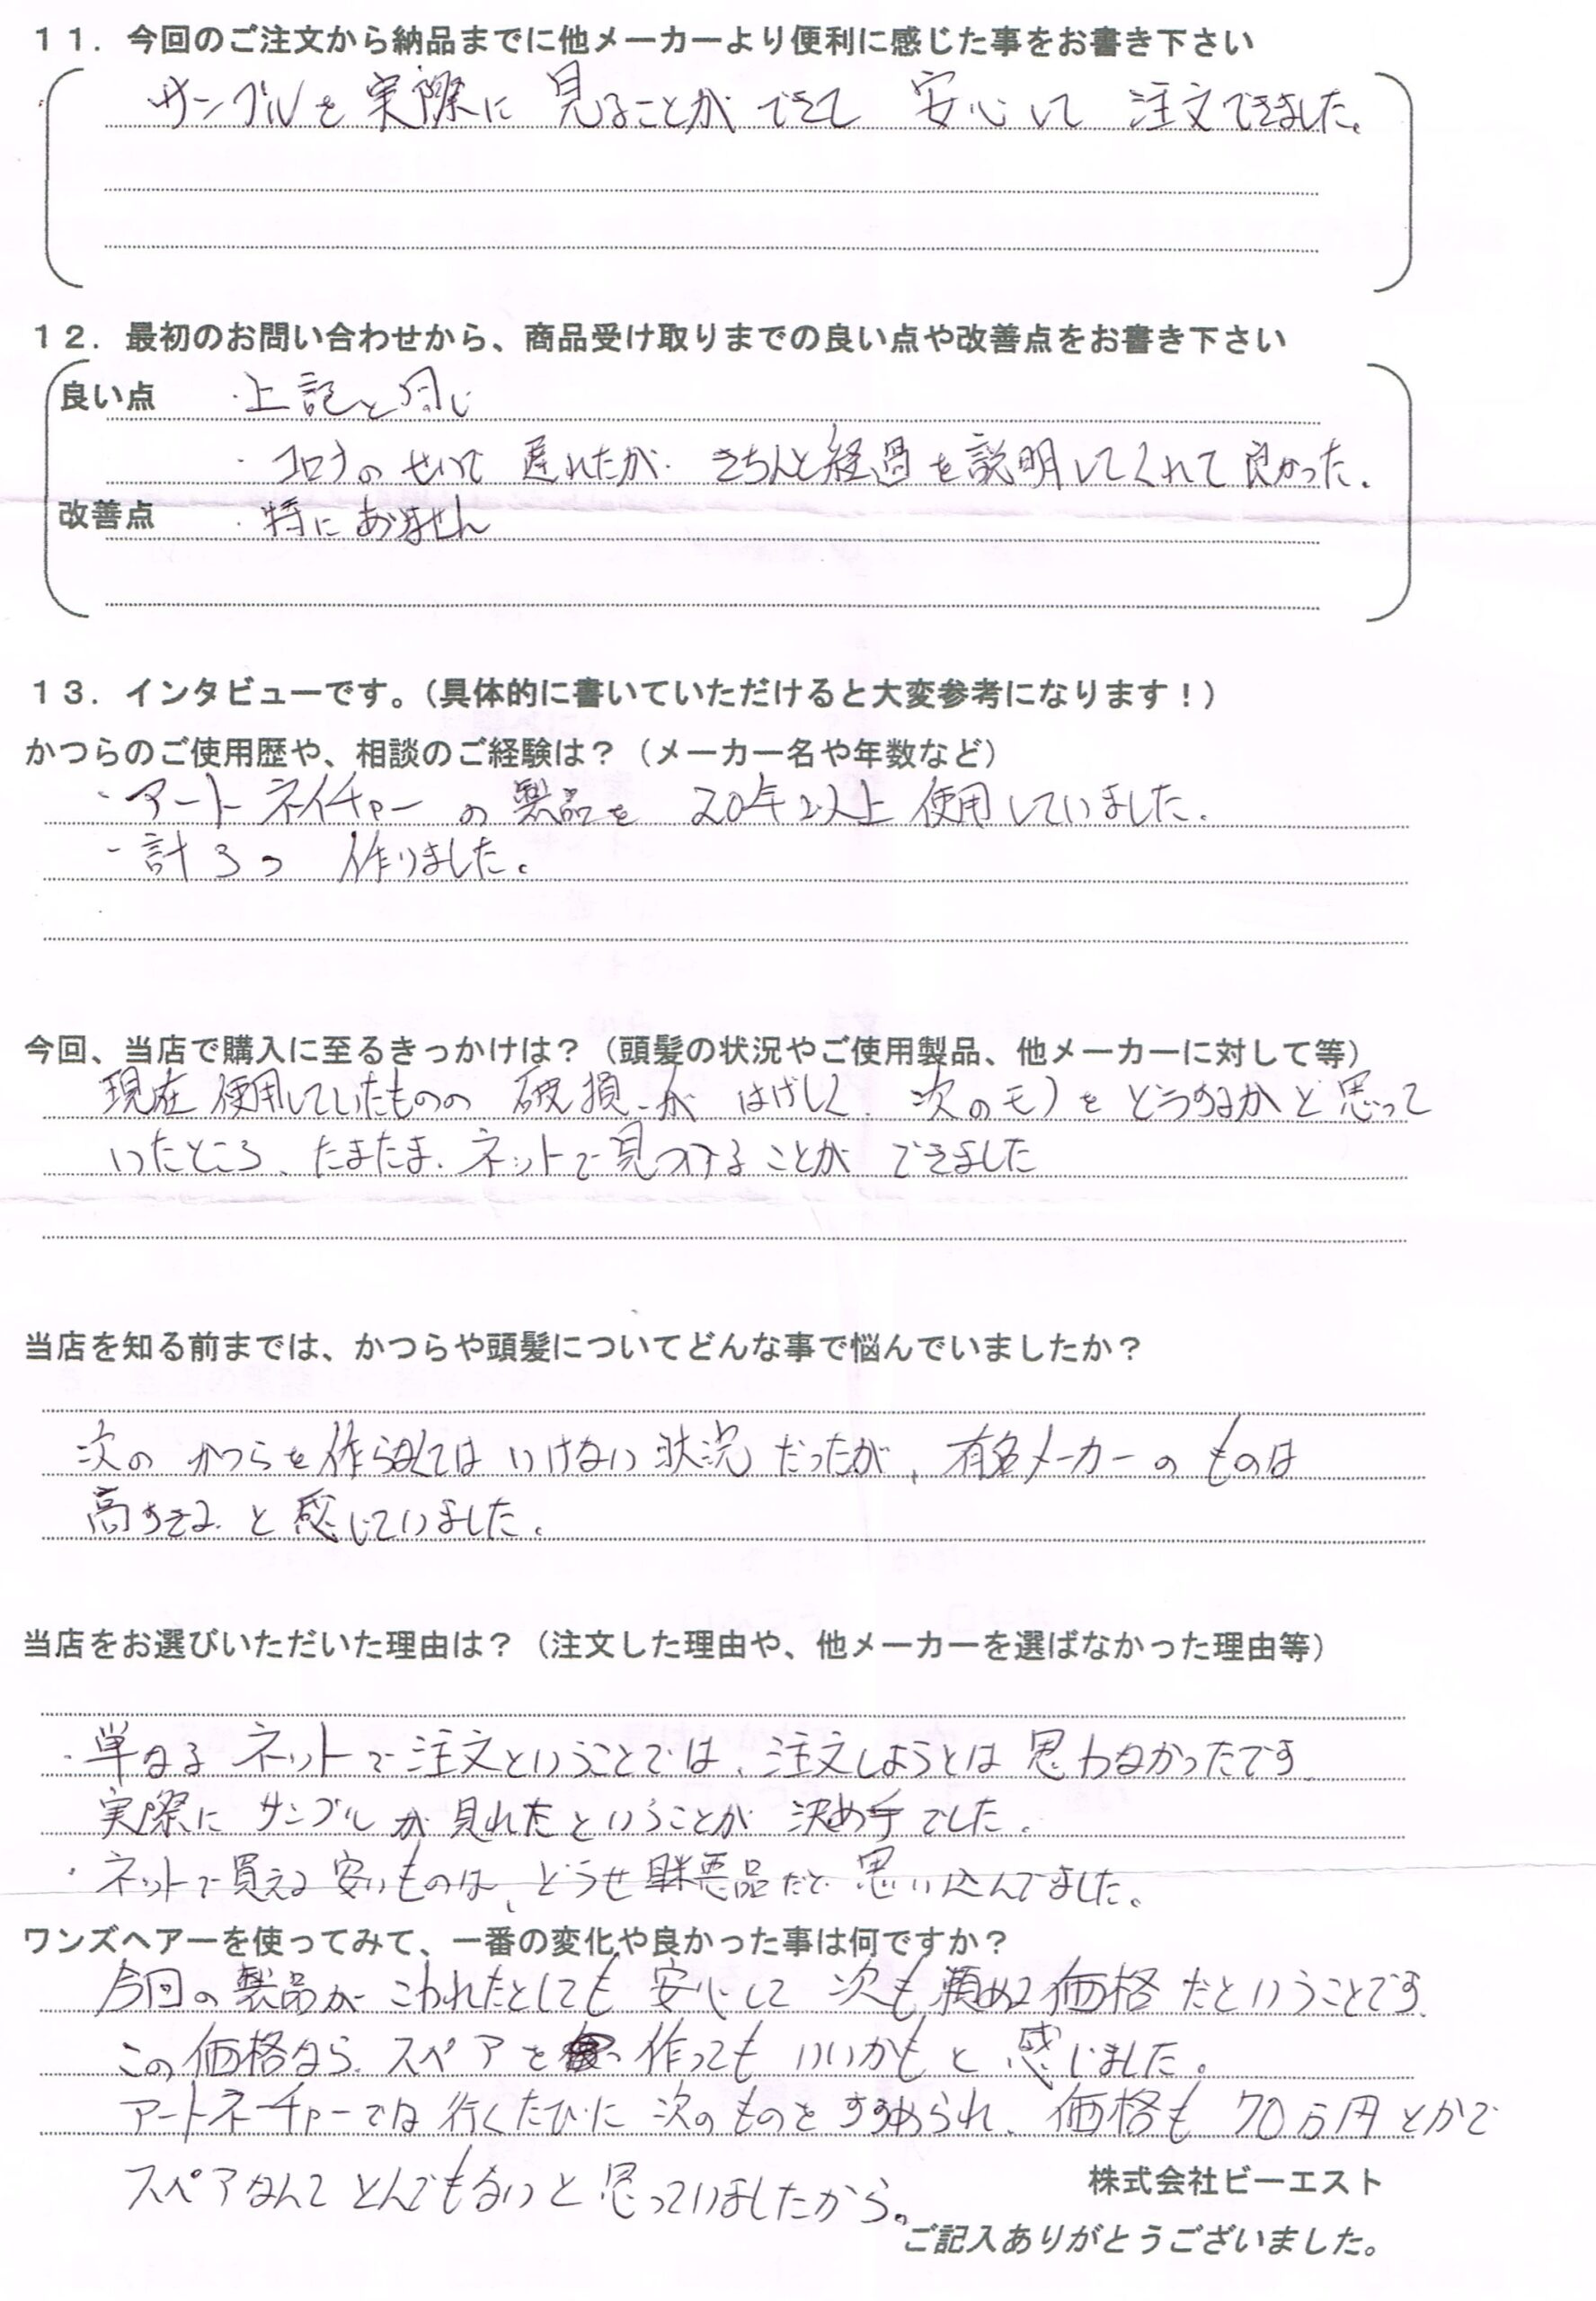 11．今回のご注文から納品までに他メーカーより便利に感じた事をお書き下さい
サンプルを実際に見ることができて 安心して 注文できました。
12．最初のお問い合わせから、商品受け取りまでの良い点や改善点をお書き下さい
良い点 ・上記と同じ
・コロナのせいで 遅れたが きちんと経過を説明してくれて良かった。
改善点 ・特にありません
13．インタビューです。（具体的に書いていただけると大変参考になります！）
かつらのご使用歴や、相談のご経験は？（メーカー名や年数など）
・アートネイチャーの製品を 20年以上 使用していました。
・計3つ 作りました。
今回、当店で購入に至るきっかけは？（頭髪の状況やご使用製品、他メーカーに対して等）
現在使用していたものの 破損が はげしく、次のモノをどうするかと思って
いたところ、たまたま、ネットで見つけることが できました
当店を知る前までは、かつらや頭髪についてどんな事で悩んでいましたか？
次の かつらを作らなくては いけない 状況 だったが、有名メーカーの ものは
高すぎる と 感じていました。
当店をお選びいただいた理由は？（注文した理由や、他メーカーを選ばなかった理由等）
・単なる ネットで注文ということでは、注文しようとは 思わなかったです。
実際に サンプルが 見れたということが 決め手でした。
・ネットで買える安いものは、どうせ 粗悪品だと 思い込んでました。
ワンズヘアーを使ってみて、一番の変化や良かった事は何ですか？
今回の製品が こわれたとしても 安心して 次も頼める価格だということです。
この価格なら、スペアを 作っても いいかもと 感じました。
アートネーチャーでは 行くたびに 次のものをすすめられ、価格も 70万円とかで
スペアなんて とんでもないと 思っていましたから。
株式会社ビーエスト
ご記入ありがとうございました。